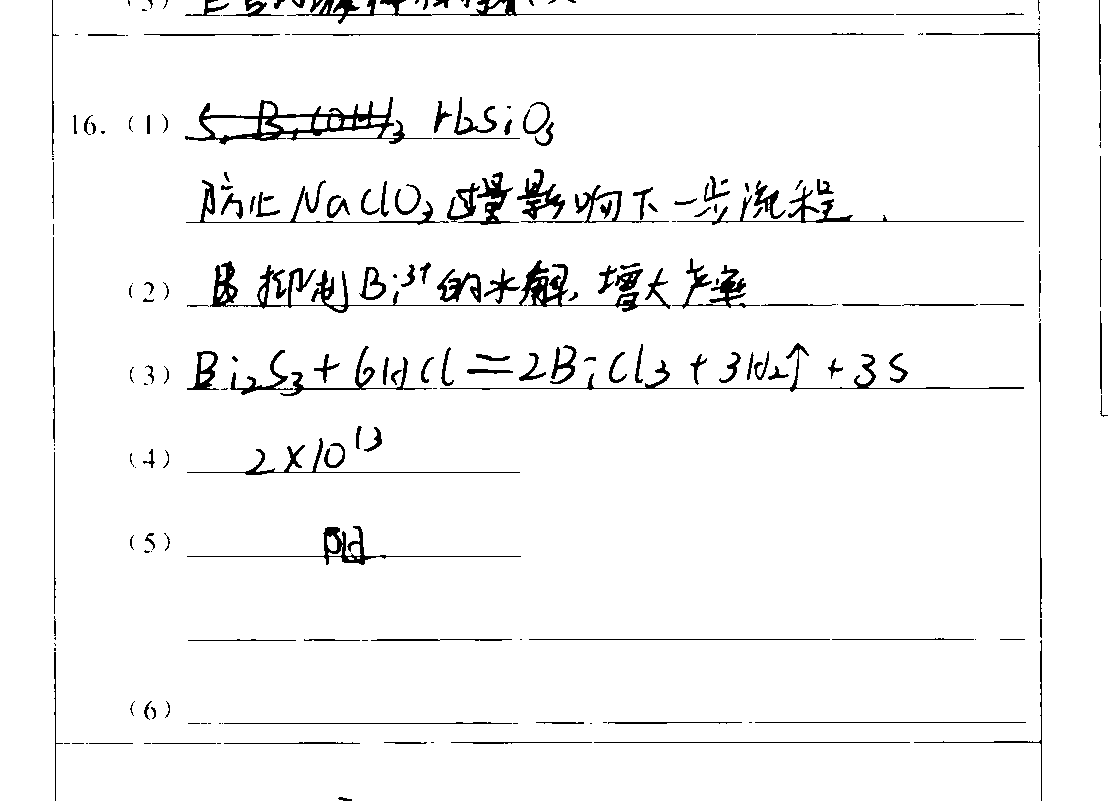 16. (1) S, Bi(OH)3 HbSiO3
防止 NaClO3 过量影响下一步流程.
(2) 抑制 Bi³⁺ 的水解, 增大产率
(3) Bi2S3 + 6HCl = 2BiCl3 + 3H2↑ + 3S
(4) 2×10¹³
(5) pH
(6)